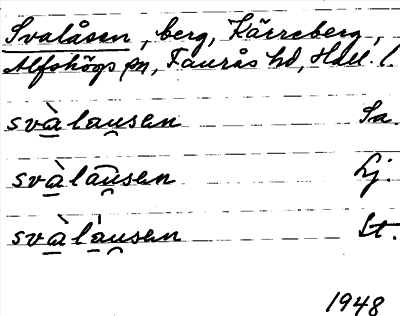 Svalåsen, berg, Kärreberg,
Alfshögs sn, Faurås hd, Hall. l.
svàlau̯sen Sa.
svàlāu̯sen Lj.
svàlàu̯sen St.
1948